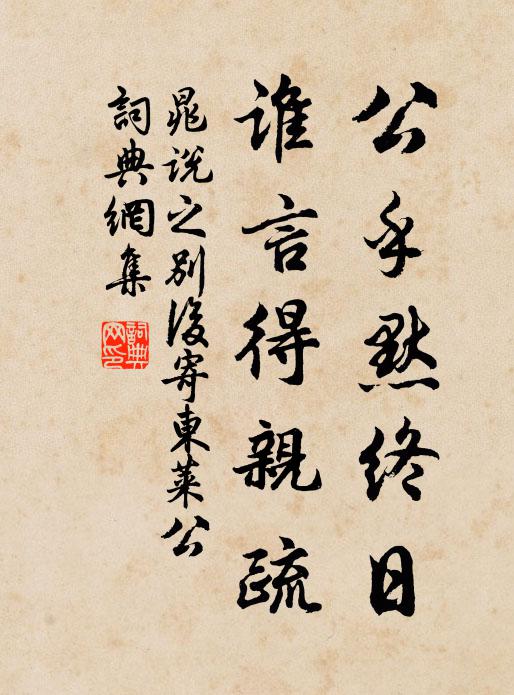 公乎默终日
谁言得親疏
晁说之别後寄東萊公
詞典網集
詞典網印